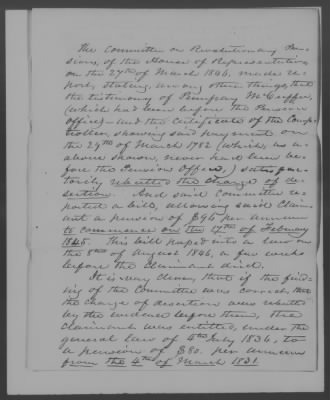 The Committee on Revolutionary Pen-
sions, of the House of Representatives
on the 27th of March 1846, made re-
port, stating, among other things, that
the testimony of
(which had been before the Pension
Office) and the Certificate of the Comp-
troller, showing said payment on
the 29th of March 1782 (which, as
above shown, never had been be-
fore the Pension Office,) satisfac-
torily rebutted the charge of de-
sertion. And said Committee re-
ported a bill, allowing said Claim-
ant a pension of $96 per annum
to commence on the 17th of February
1845. This bill passed into a law on
the 8th of August 1846, a few weeks
before the claimant died.
It is very clear, that if the find-
ing of the Committee were correct, that
the charge of desertion was rebutted
by the evidence before them, the
claimant was entitled, under the
general law of 4th July 1836, to
a pension of $80. per annum
from the 4th of March 1831